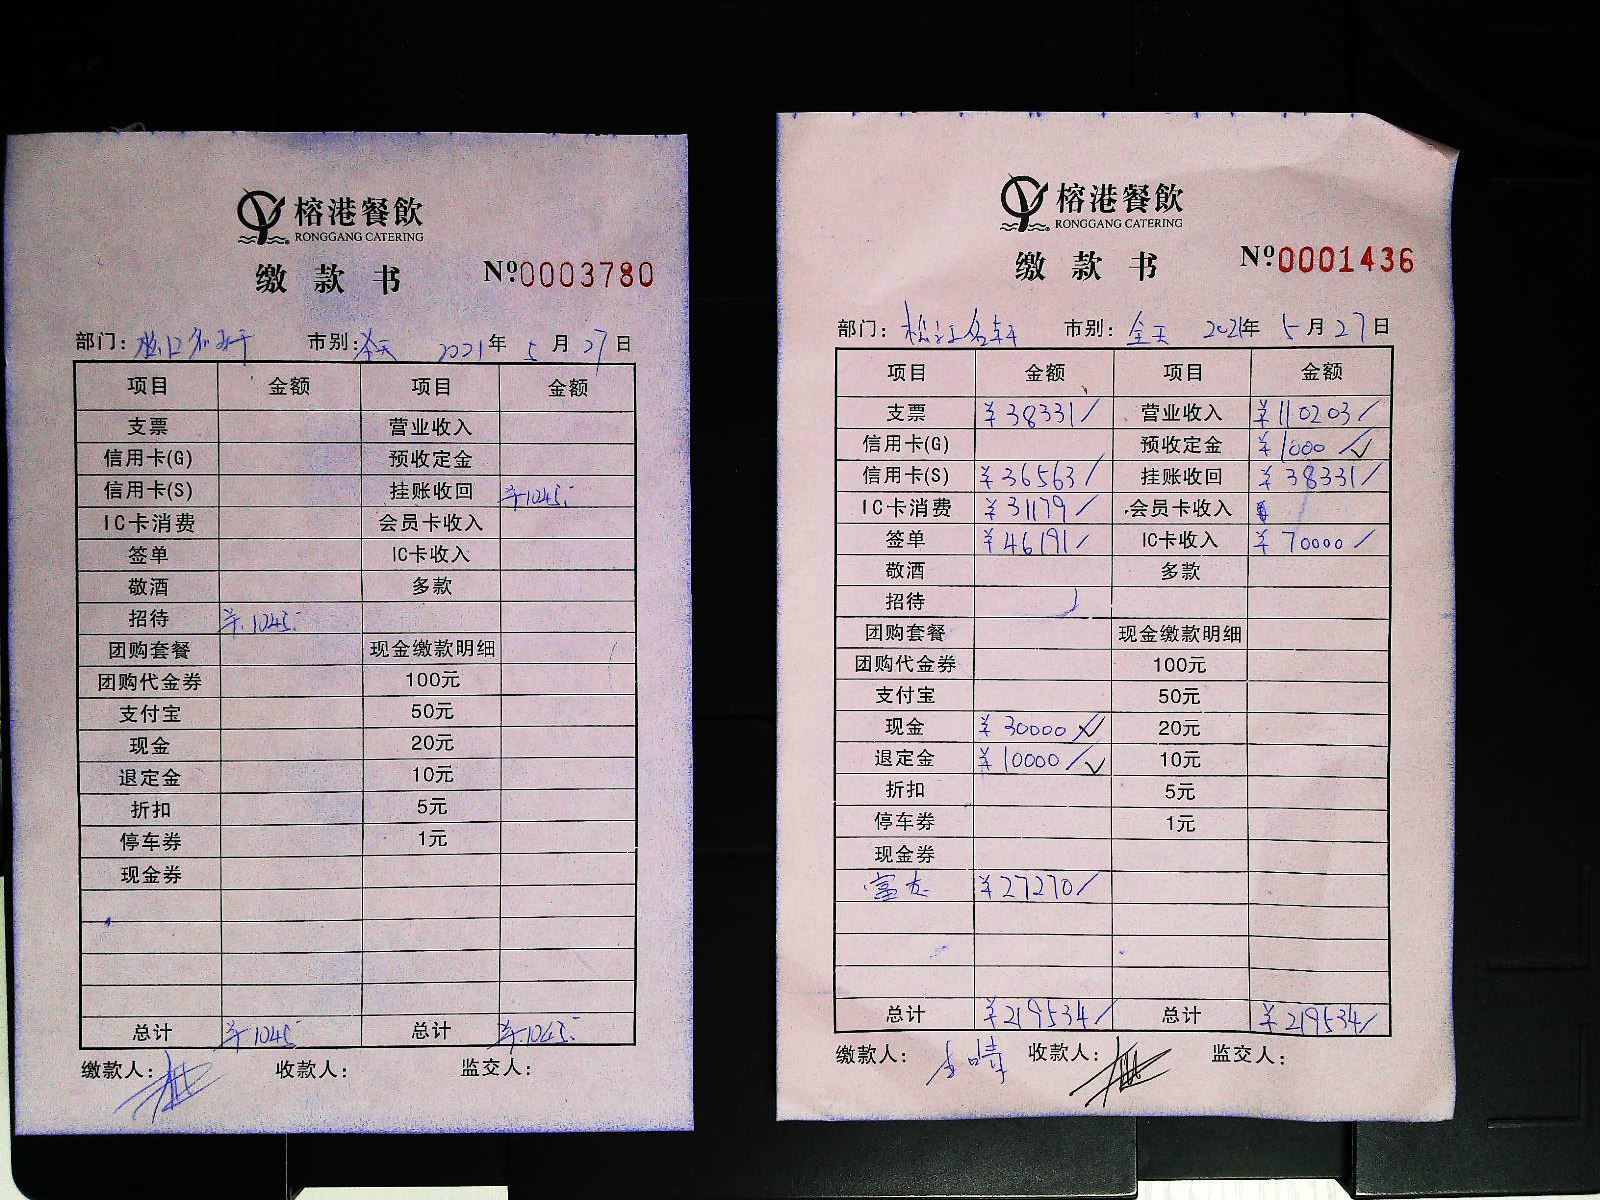 榕港餐飲
RONGGANG CATERING
缴款书 Nº0003780
部门: 市别:全天 2021年5月27日
项目 金额 项目 金额
支票 营业收入
信用卡(G) 预收定金
信用卡(S) 挂账收回 ¥1045
IC卡消费 会员卡收入
签单 IC卡收入
敬酒 多款
招待 ¥1045
团购套餐 现金缴款明细
团购代金券 100元
支付宝 50元
现金 20元
退定金 10元
折扣 5元
停车券 1元
现金券
总计 ¥1045 总计 ¥1045
缴款人: 收款人: 监交人:
榕港餐飲
RONGGANG CATERING
缴款书 Nº0001436
部门:松江名轩 市别:全天 2021年5月27日
项目 金额 项目 金额
支票 ¥38331 营业收入 ¥110203
信用卡(G) 预收定金 ¥1000
信用卡(S) ¥36563 挂账收回 ¥38331
IC卡消费 ¥31179 会员卡收入
签单 ¥46191 IC卡收入 ¥70000
敬酒 多款
招待
团购套餐 现金缴款明细
团购代金券 100元
支付宝 50元
现金 ¥30000 20元
退定金 ¥10000 10元
折扣 5元
停车券 1元
现金券
¥27270
总计 ¥219534 总计 ¥219534
缴款人: 收款人: 监交人: